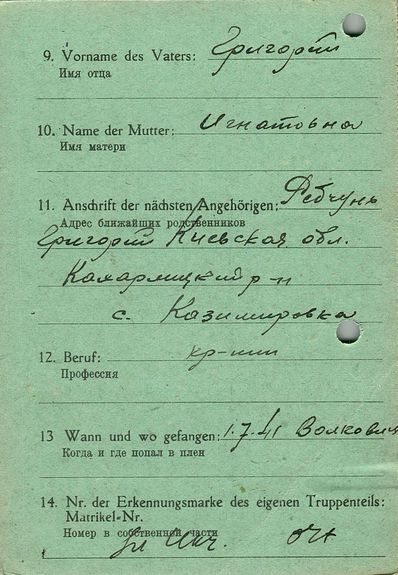 9. Vorname des Vaters: Григорий
Имя отца
10. Name der Mutter: Игнатовна
Имя матери
11. Anschrift der nächsten Angehörigen: Рябчунь
Адрес ближайших родственников
Григорий Киевская обл.
Кагарлицкий р-н
с. Казимировка
12. Beruf: кр-нин
Профессия
13 Wann und wo gefangen: 1.7.41 Волковыс
Когда и где попал в плен
14. Nr. der Erkennungsmarke des eigenen Truppenteils:
Matrikel-Nr.
Номер в собственной части